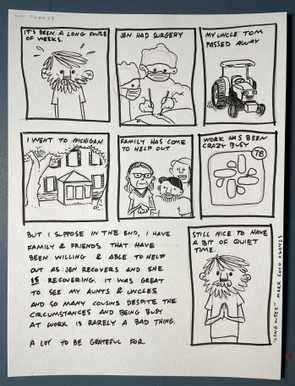 IT'S BEEN A LONG COUPLE
OF WEEKS.
JEN HAD SURGERY
MY UNCLE TOM
PASSED AWAY
I WENT TO MICHIGAN
FAMILY HAS COME
TO HELP OUT
WORK HAS BEEN
CRAZY BUSY
78
BUT I SUPPOSE IN THE END, I HAVE
FAMILY & FRIENDS THAT HAVE
BEEN WILLING & ABLE TO HELP
OUT AS JEN RECOVERS AND SHE
IS RECOVERING. IT WAS GREAT
TO SEE MY AUNTS & UNCLES
AND SO MANY COUSINS DESPITE THE
CIRCUMSTANCES AND BEING BUSY
AT WORK IS RARELY A BAD THING.
A LOT TO BE GRATEFUL FOR.
STILL NICE TO HAVE
A BIT OF QUIET
TIME.